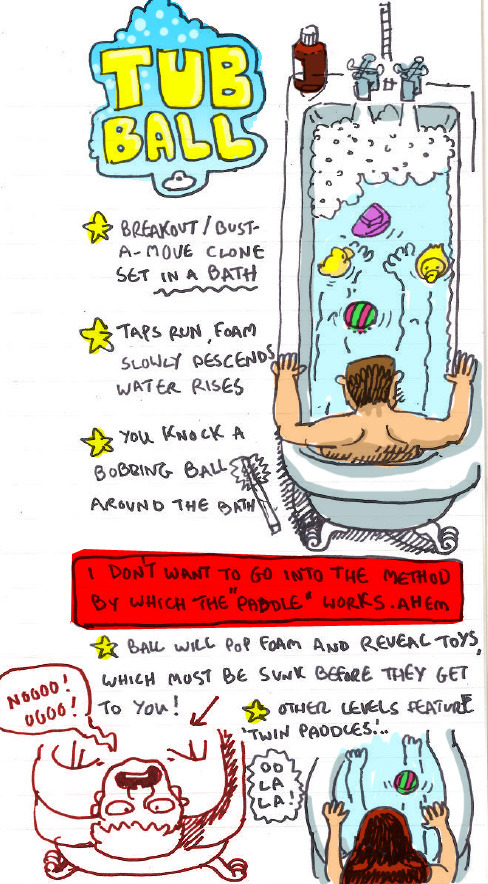 TUB
BALL
BREAKOUT / BUST-
A-MOVE CLONE
SET IN A BATH
TAPS RUN, FOAM
SLOWLY DESCENDS,
WATER RISES
YOU KNOCK A
BOBBING BALL
AROUND THE BATH
I DON'T WANT TO GO INTO THE METHOD
BY WHICH THE "PADDLE" WORKS. AHEM
BALL WILL POP FOAM AND REVEAL TOYS,
WHICH MUST BE SUNK BEFORE THEY GET
TO YOU!
OTHER LEVELS FEATURE
'TWIN PADDLES'...
NOOOO!
UGOO!
OO
LA
LA!